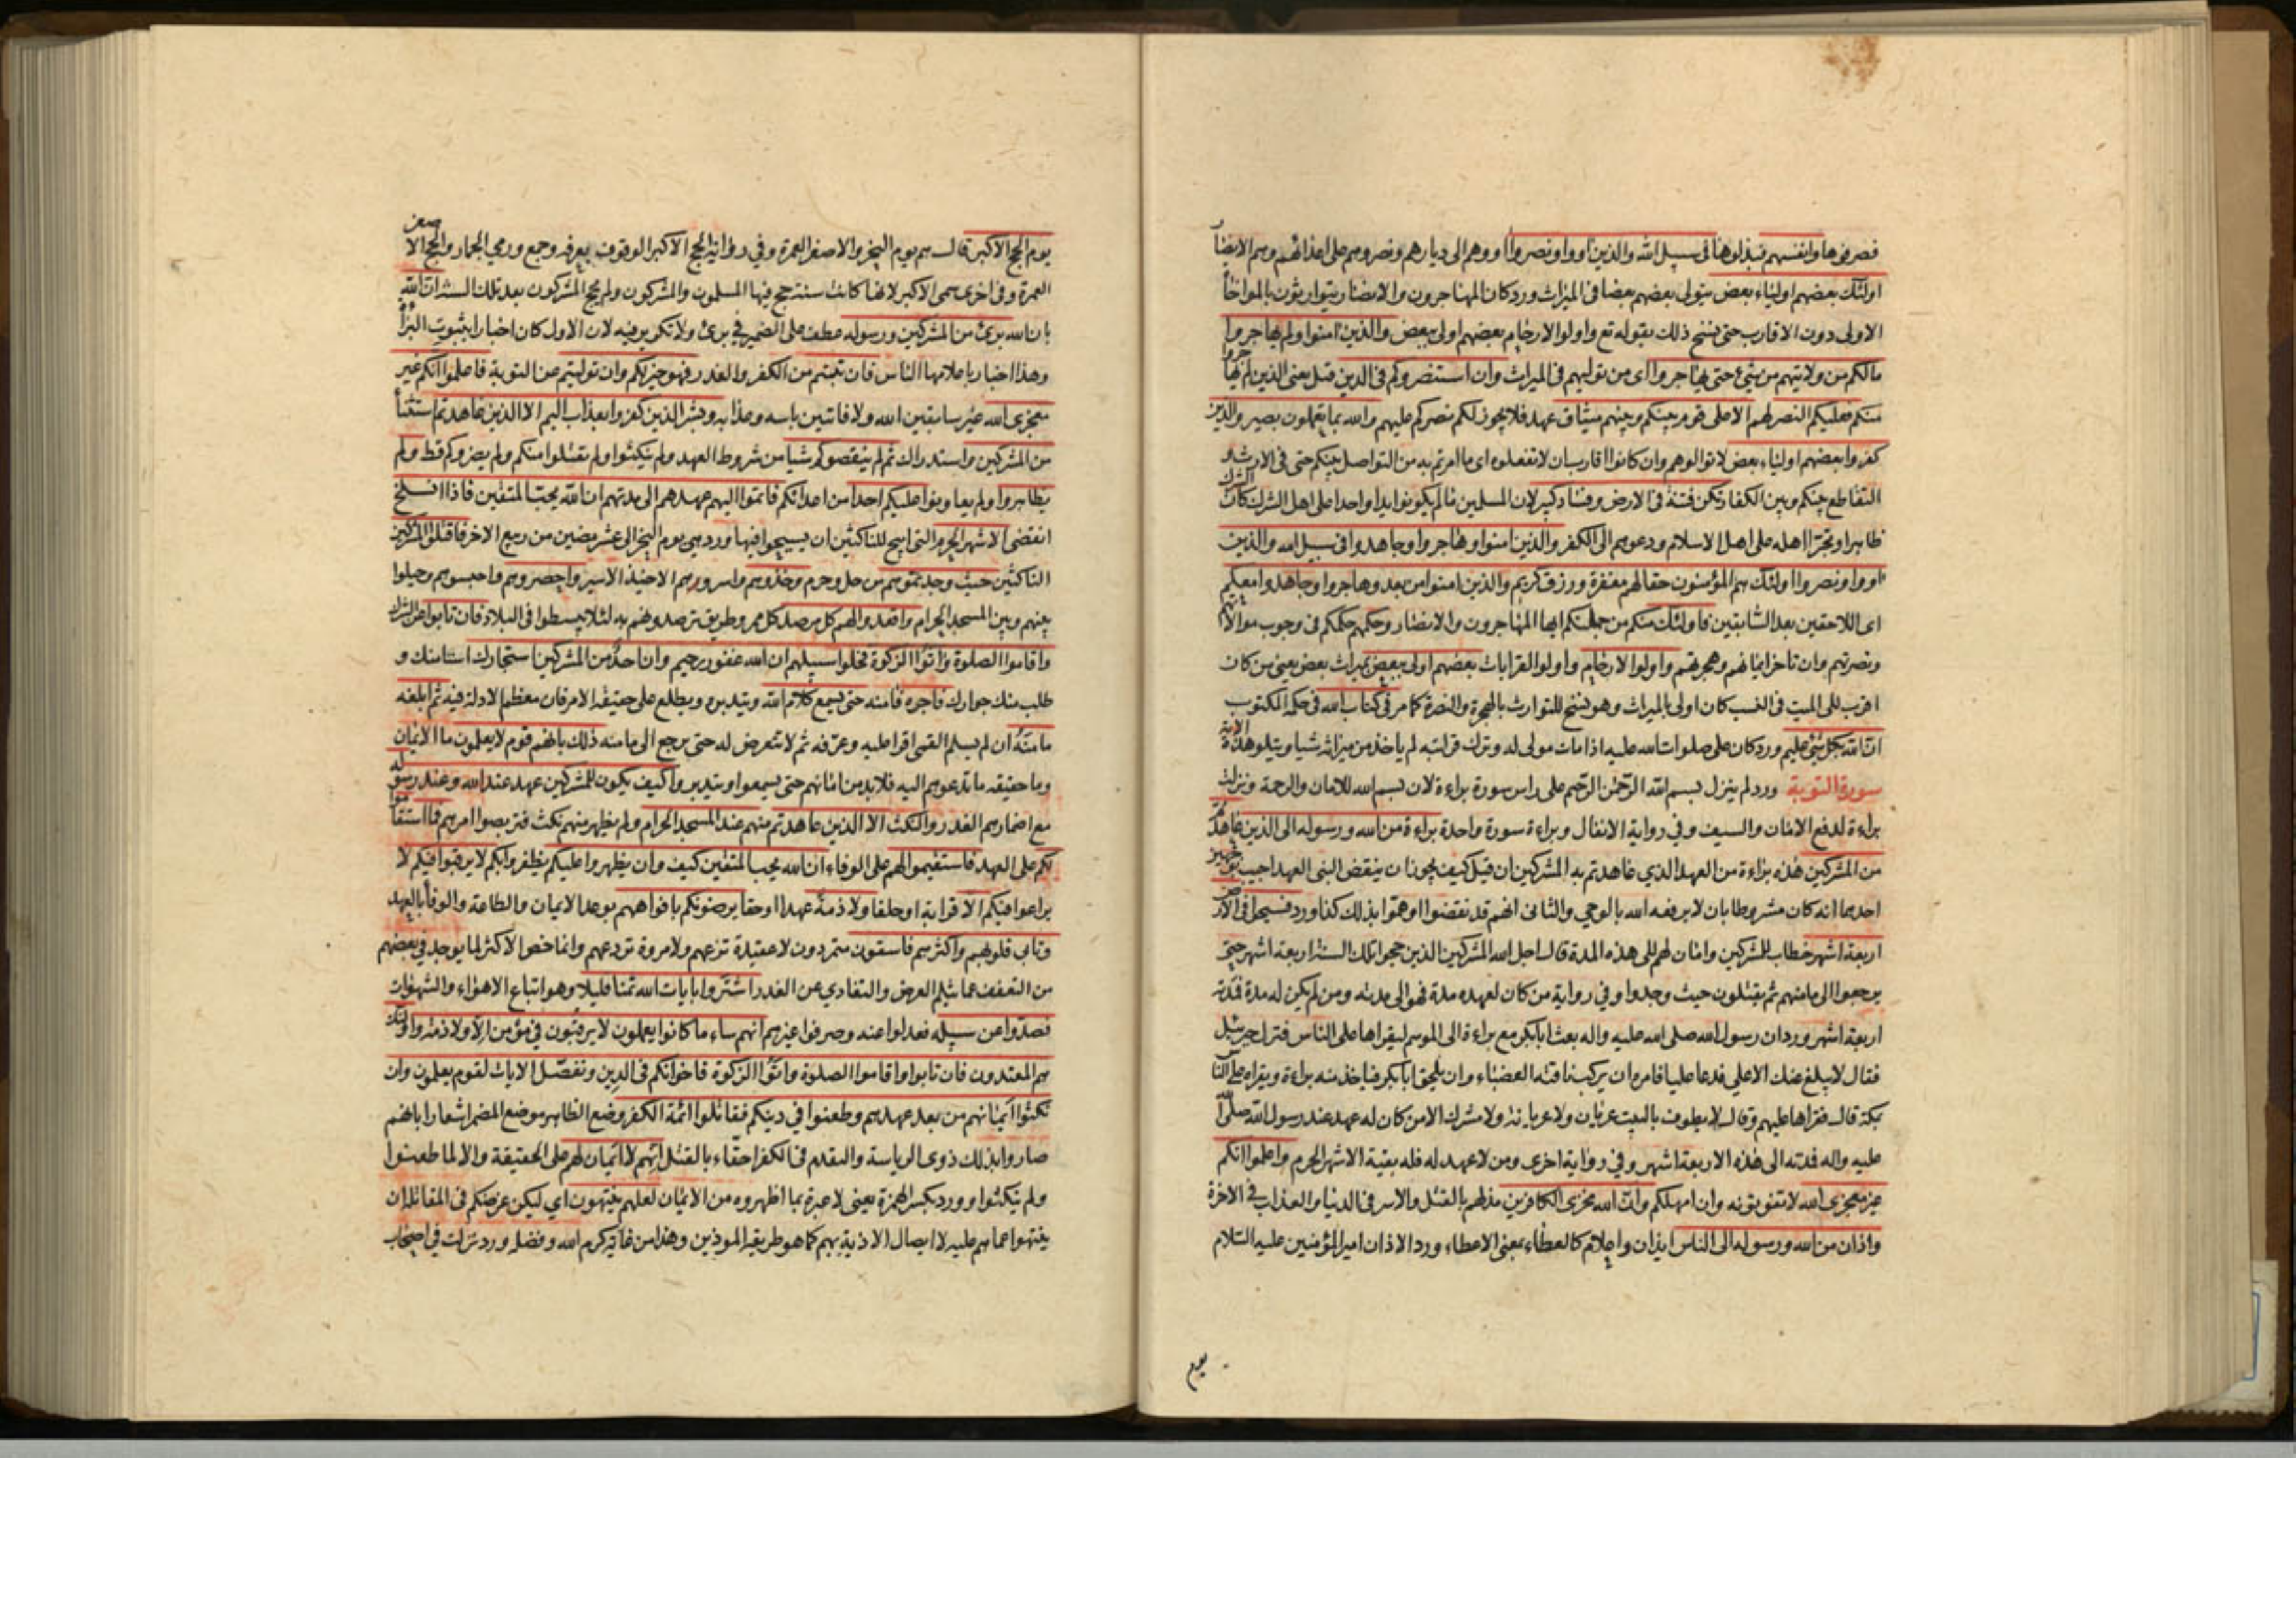 فصرفوها وانفسهم فبذلوها فى سبيل الله والذين اووا ونصروا اووهم الى ديارهم ونصروهم على اعدائهم وهم الانصار
اولئك بعضهم اولياء بعض يتولى بعضهم بعضا فى الميراث ورد كان المهاجرون والانصار يتوارثون بالمواخاة
الاولى دون الاقارب حتى نسخ ذلك بقوله تع واولوا الارحام بعضهم اولى ببعض والذين امنوا ولم يهاجروا
مالكم من ولايتهم من شئ حتى يهاجروا اى من توليهم فى الميراث وان استنصروكم فى الدين قيل يعنى الذين لم يهاجروا
منكم فعليكم النصر لهم الا على قوم بينكم وبينهم ميثاق عهد فلا يجوز لكم نصركم عليهم والله بما تعملون بصير والذين
كفروا بعضهم اولياء بعض لا توالوهم وان كانوا اقارب ان لا تفعلوه اى ما امرتم به من التواصل بينكم حتى فى الارث و
التقاطع بينكم وبين الكفار تكن فتنة فى الارض وفساد كبير لان المسلمين مالم يكونوا يدا واحدا على اهل الشرك كان الشرك
ظاهرا وتجرا اهله على اهل الاسلام ودعوهم الى الكفر والذين امنوا وهاجروا وجاهدوا فى سبيل الله والذين
اووا ونصروا اولئك هم المؤمنون حقا لهم مغفرة ورزق كريم والذين امنوا من بعد وهاجروا وجاهدوا معكم
اى اللاحقين بعد السابقين فاولئك منكم من جملتكم ايها المهاجرون والانصار وحكمهم حكمكم فى وجوب موالاتهم
ونصرتهم وان تاخر ايمانهم وهجرتهم واولوا الارحام واولوا القرابات بعضهم اولى ببعض بميراث بعض يعنى من كان
اقرب للى الميت فى النسب كان اولى بالميراث وهو نسخ للتوارث بالهجرة والنصرة كما مر فى كتاب الله فى حكمه المكتوب
ان الله بكل شئ عليم ورد كان على صلوات الله عليه اذا مات مولى له وترك قرابته لم ياخذ من ميراثه شيا ويتلو هذه الاية
سورة التوبة ورد لم ينزل بسم الله الرحمن الرحيم على راس سورة براءة لان بسم الله للامان والرحمة ونزلت
براءة لدفع الامان والسيف وفي رواية الانفال وبراءة سورة واحدة براءة من الله ورسوله الى الذين عاهدتم
من المشركين هذه براءة من العهد الذي عاهدتم به المشركين ان قيل كيف يجوز ان ينقض النبى العهد اجيب بوجهين
احدهما انه كان مشروطا بان لا يرفعه الله بالوحي والثانى انهم قد نقضوا او هموا بذلك كذا ورد فسيحوا فى الارض
اربعة اشهر خطاب للمشركين وامان لهم للى هذه المدة قال اجل الله المشركين الذين حجوا تلك السنة اربعة اشهر حتى
يرجعوا الى مامنهم ثم يقتلون حيث وجدوا وفي رواية من كان لعهده مدة فهو الى مدته ومن لم يكن له مدة فمدته
اربعة اشهر ورد ان رسول الله صلى الله عليه واله بعث ابابكر مع براءة الى الموسم ليقراها على الناس فنزل جبرئيل
فقال لا يبلغ عنك الا على فدعا عليا فامره ان يركب ناقته العضباء وان يلحق ابابكر فياخذ منه براءة ويقراه على الناس
بمكة قال فقراها عليهم وقال لا يطوف بالبيت عريان ولا عريانة ولا مشرك الا من كان له عهد عند رسول الله صلى الله
عليه واله فمدته الى هذه الاربعة اشهر وفي رواية اخرى ومن لا عهد له فله بقية الاشهر الحرم واعلموا انكم
غير معجزى الله لا تفوتونه وان امهلكم وان الله مخزى الكافرين مذلهم بالقتل والاسر فى الدنيا والعذاب فى الاخرة
واذان من الله ورسوله الى الناس ايذان واعلام كالعطاء بمعنى الاعطاء ورد الاذان امير المؤمنين عليه السلام
يوم
يوم الحج الاكبر قال هو يوم النحر والاصغر العمرة وفي رواية الحج الاكبر الوقوف بعرفه وجمع ورمي الجمار والحج الاصغر
العمرة وفى اخرى سمى الاكبر لانها كانت سنة حج فيها المسلمون والمشركون ولم يحج المشركون بعد تلك السنة ان الله
بان الله برئ من المشركين ورسوله عطف على الضمير فى برئ ولا تكرير فيه لان الاول كان اخبارا بثبوت البراة
وهذا اخبار باعلامها الناس فان تبتم من الكفر والغدر فهو خير لكم وان توليتم عن التوبة فاعلموا انكم غير
معجزى الله غير سابقين الله ولا فائتين باسه وعذابه وبشر الذين كفروا بعذاب اليم الا الذين عاهدتم استثناء
من المشركين واستدراك ثم لم ينقصوكم شيا من شروط العهد ولم ينكثوا ولم يقتلوا منكم ولم يضروكم قط ولم
يظاهروا ولم يعاونوا عليكم احدا من اعدائكم فاتموا اليهم عهدهم الى مدتهم ان الله يحب المتقين فاذا انسلخ
انقضى الاشهر الحرم التى ابيح للناكثين ان يسيحوا فيها ورد هى يوم النحر الى عشر مضين من ربيع الاخر فاقتلوا المشركين
الناكثين حيث وجدتموهم من حل وحرم وخذوهم واسروهم الاخيذ الاسير واحصروهم واحبسوهم وحيلوا
بينهم وبين المسجد الحرام واقعدوا لهم كل مرصد كل ممر وطريق ترصدونهم به لئلا يبسطوا فى البلاد فان تابوا عن الشرك
واقاموا الصلوة واتوا الزكوة فخلوا سبيلهم ان الله غفور رحيم وان احد من المشركين استجارك استامنك و
طلب منك جوارك فاجره فامنه حتى يسمع كلام الله ويتدبره ويطلع على حقيقة الامر فان معظم الادلة فيه ثم ابلغه
مامنه ان لم يسلم القسى اقرا عليه وعرفه ثم لا تتعرض له حتى يرجع الى مامنه ذلك بانهم قوم لا يعلمون ما الايمان
وما حقيقه ما تدعوهم اليه فلا بد من امانهم حتى يسمعوا ويتدبروا كيف يكون للمشركين عهد عند الله وعند رسوله
مع اضمارهم الغدر والنكث الا الذين عاهدتم منهم عند المسجد الحرام ولم يظهر منهم نكث فتربصوا امرهم فما استقاموا
لكم على العهد فاستقيموا لهم على الوفاء ان الله يحب المتقين كيف وان يظهروا عليكم يظفروا بكم لا يرقبوا فيكم لا
يراعوا فيكم الا قرابة او حلفا ولا ذمة عهدا او حقا يرضونكم بافواههم بوعد الايمان والطاعة والوفا بالعهد
وتابى قلوبهم واكثرهم فاسقون متمردون لا عقيدة تزعهم ولا مروة تردعهم وانما خص الاكثر لما يوجد فى بعضهم
من التعفف عما يثلم العرض والتفادي عن الغدر اشتروا بايات الله ثمنا قليلا وهو اتباع الاهواء والشهوات
فصدوا عن سبيله فعدلوا عنه وصرفوا غيرهم انهم ساء ما كانوا يعملون لا يرقبون فى مؤمن الا ولا ذمة واولئك
هم المعتدون فان تابوا واقاموا الصلوة واتوا الزكوة فاخوانكم فى الدين ونفصل الايات لقوم يعلمون وان
نكثوا ايمانهم من بعد عهدهم وطعنوا في دينكم فقاتلوا ائمة الكفر وضع الظاهر موضع المضمر اشعارا بانهم
صاروا بذلك ذوى الرياسة والتقدم فى الكفر احقاء بالقتل انهم لا ايمان لهم على الحقيقة والا لما طعنوا
ولم ينكثوا وورد بكسر الهمزة يعنى لا عبرة بما اظهروه من الايمان لعلهم ينتهون اي ليكن غرضكم فى المقاتلة ان
ينتهوا عما هم عليه لا ايصال الاذية بهم كما هو طريقه الموذين وهذا من غاية كرم الله وفضله ورد نزلت في اصحاب